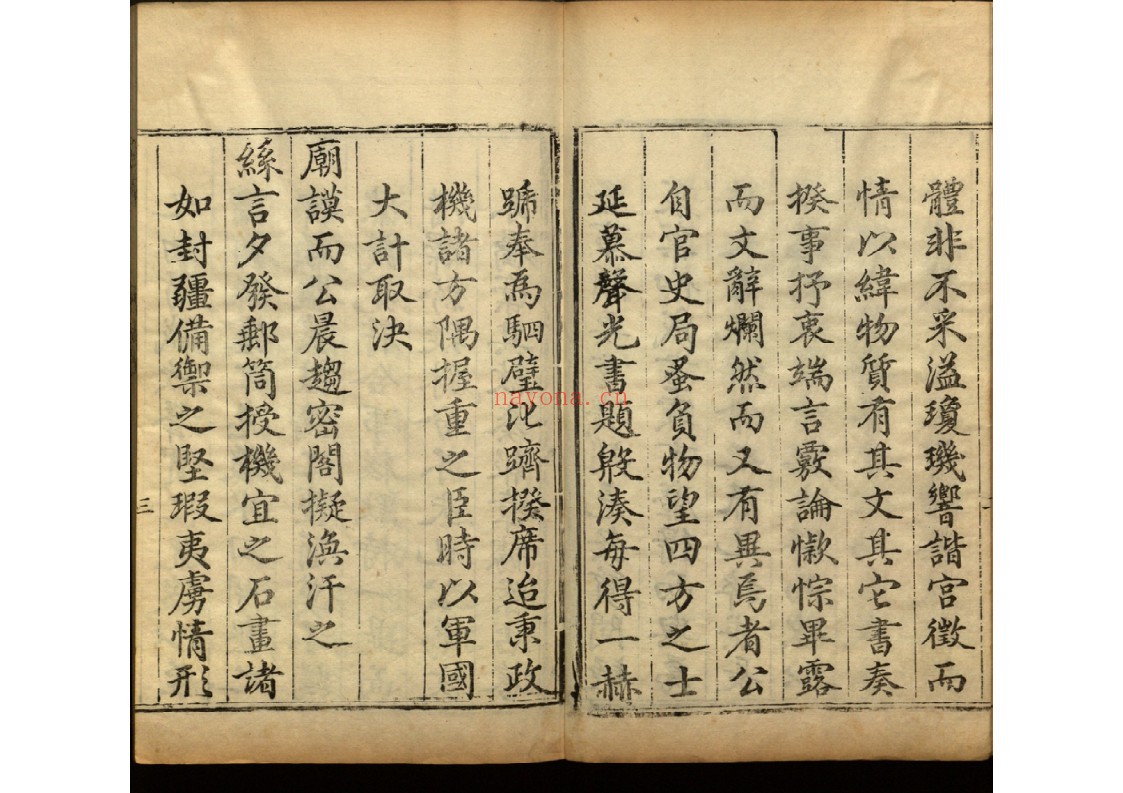 體非不采溢瓊璣響諧宮徵而
情以緯物質有其文其它書奏
揆事抒衷端言覈論懒悰畢露
而文辭爛然而又有異焉者公
自官史局蚤負物望四方之士
延慕聲光書題殷湊每得一赫
蹏奉為駟璧比躋揆席迨秉政
機諸方隅握重之臣時以軍國
大計取決
廟謨而公晨趨密閣擬渙汗之
絲言夕發郵筒授機宜之石畫諸
如封疆備禦之堅瑕夷虜情形
三
nayona.cn